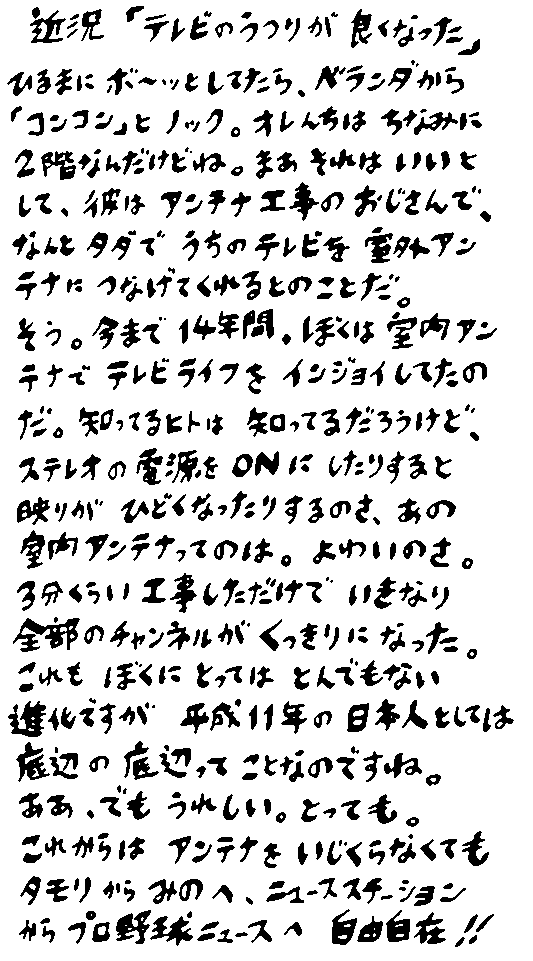 近況「テレビのうつりが 良くなった」
ひるまに ボ〜ッとしてたら、ベランダから
「コンコン」と ノック。オレんちは ちなみに
2階なんだけどね。まあ それは いいと
して、彼は アンテナ工事の おじさんで、
なんと タダで うちの テレビを 室外アン
テナに つなげてくれるとのことだ。
そう。今まで 14年間、ぼくは 室内アン
テナで テレビライフを インジョイしてたの
だ。知ってるヒトは 知ってるだろうけど、
ステレオの電源を ONに したりすると
映りが ひどくなったりするのさ、あの
室内アンテナってのは。よわいのさ。
3分くらい 工事しただけで いきなり
全部のチャンネルが くっきりに なった。
これも ぼくに とっては とんでもない
進化ですが 平成11年の 日本人としては
底辺の 底辺って ことなのですね。
ああ、でも うれしい。とっても。
これからは アンテナを いじくらなくても
タモリから みのへ、ニュースステーション
から プロ野球ニュースへ 自由自在!!